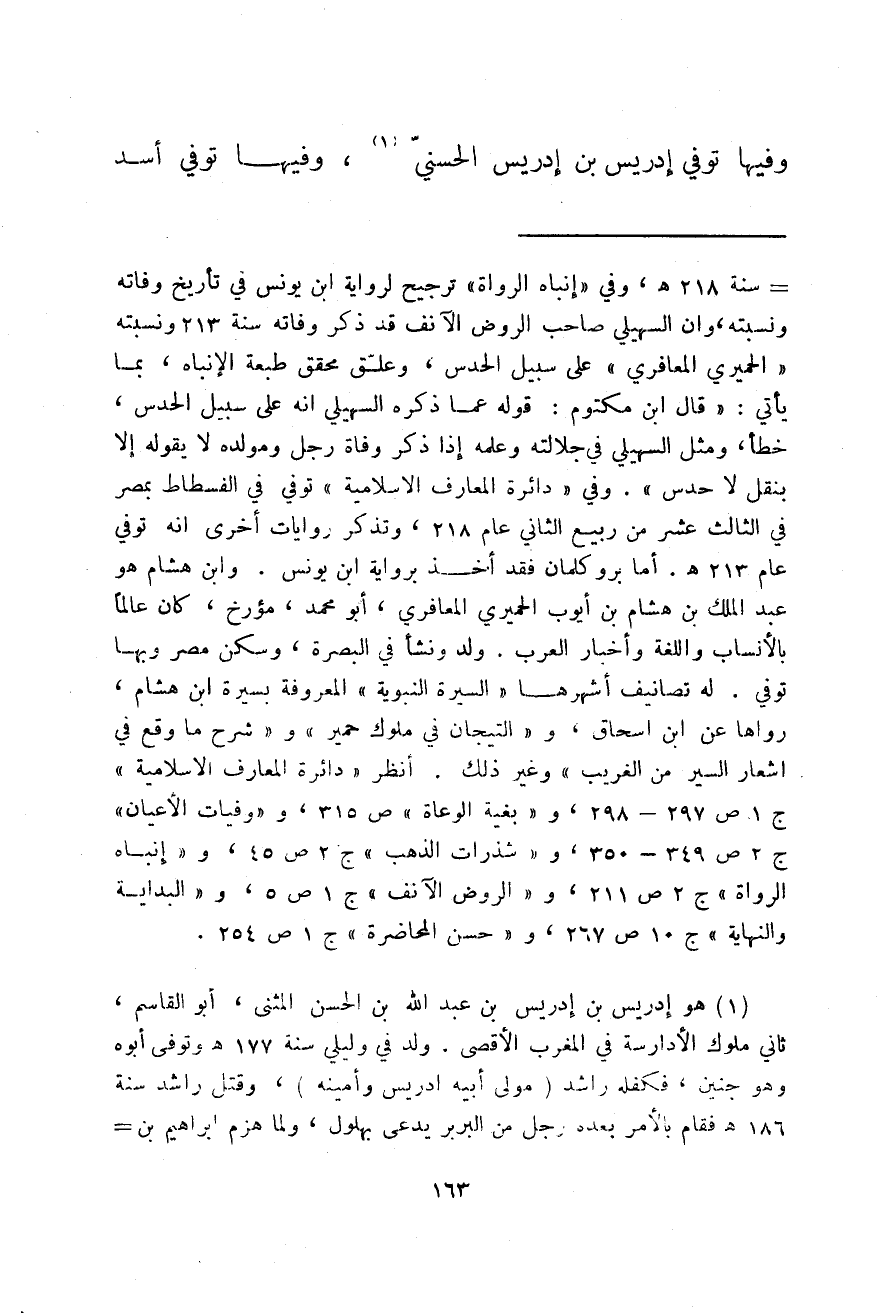 وفيها توفي إدريس بن إدريس الحسنيّ (١) ، وفيهــا توفي أسـد
= سنة ٢١٨ هـ ، وفي «إنباه الرواة» ترجيح لرواية ابن يونس في تأريخ وفاته
ونسبته ، وان السهيلي صاحب الروض الآنف قد ذكر وفاته سنة ٢١٣ ونسبته
« الحميري المعافري » على سبيل الحدس ، وعلـّق محقق طبعة الإنباه ، بمـا
يأتي : « قال ابن مكتوم : قوله عمـا ذكره السهيلي انه على سبيل الحدس ،
خطأ ، ومثل السهيلي في جلالته وعلمه إذا ذكر وفاة رجل ومولده لا يقوله إلا
بنقل لا حدس » . وفي « دائرة المعارف الاسلامية » توفي في الفسطاط بمصر
في الثالث عشر من ربيـع الثاني عام ٢١٨ ، وتذكر روايات أخرى انه توفي
عام ٢١٣ هـ . أما بروكلمان فقد أخــذ برواية ابن يونس . وابن هشام هو
عبد الملك بن هشام بن أيوب الحميري المعافري ، أبو محمد ، مؤرخ ، كان عالماً
بالأنساب واللغة وأخبار العرب . ولد ونشأ في البصرة ، وسكن مصر وبهـا
توفي . له تصانيف أشهرهــا « السيرة النبوية » المعروفة بسيرة ابن هشام ،
رواها عن ابن اسحاق ، و « التيجان في ملوك حمير » و « شرح ما وقع في
اشعار السير من الغريب » وغير ذلك . أنظر « دائرة المعارف الاسلامية »
ج ١ ص ٢٩٧ – ٢٩٨ ، و « بغية الوعاة » ص ٣١٥ ، و «وفيات الأعيان»
ج ٢ ص ٣٤٩ – ٣٥٠ ، و « شذرات الذهب » ج ٢ ص ٤٥ ، و « إنبـاه
الرواة » ج ٢ ص ٢١١ ، و « الروض الآنف » ج ١ ص ٥ ، و « البدايـة
والنهاية » ج ١٠ ص ٢٦٧ ، و « حسن المحاضرة » ج ١ ص ٢٥٤ .
(١) هو إدريس بن إدريس بن عبد الله بن الحسن المثنى ، أبو القاسم ،
ثاني ملوك الأدارسة في المغرب الأقصى . ولد في وليلي سنة ١٧٧ هـ وتوفى أبوه
وهو جنين ، فكفله راشد ( مولى أبيه ادريس وأمينه ) ، وقتل راشد سنة
١٨٦ هـ فقام بالأمر بعده رجل من البربر يدعى بهلول ، ولما هزم ابراهيم بن =
١٦٣